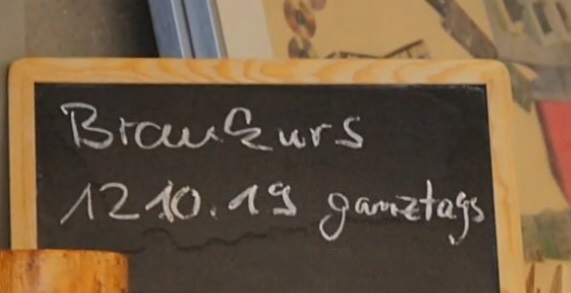 Braukurs
12 10.19 ganztags